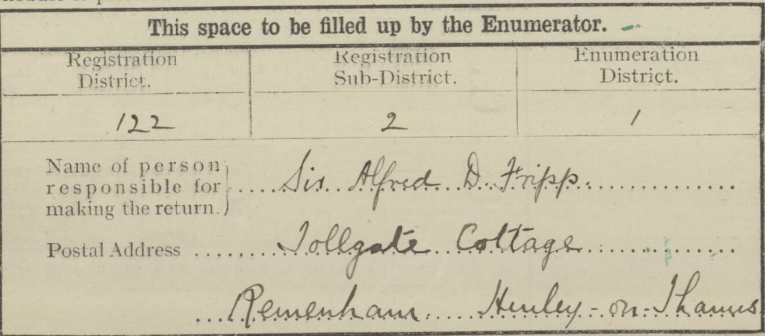 This space to be filled up by the Enumerator.
Registration District.
Registration Sub-District.
Enumeration District.
122 2 1
Name of person responsible for making the return. Sir Alfred D. Fripp
Postal Address Tollgate Cottage
Remenham Henley-on-Thames